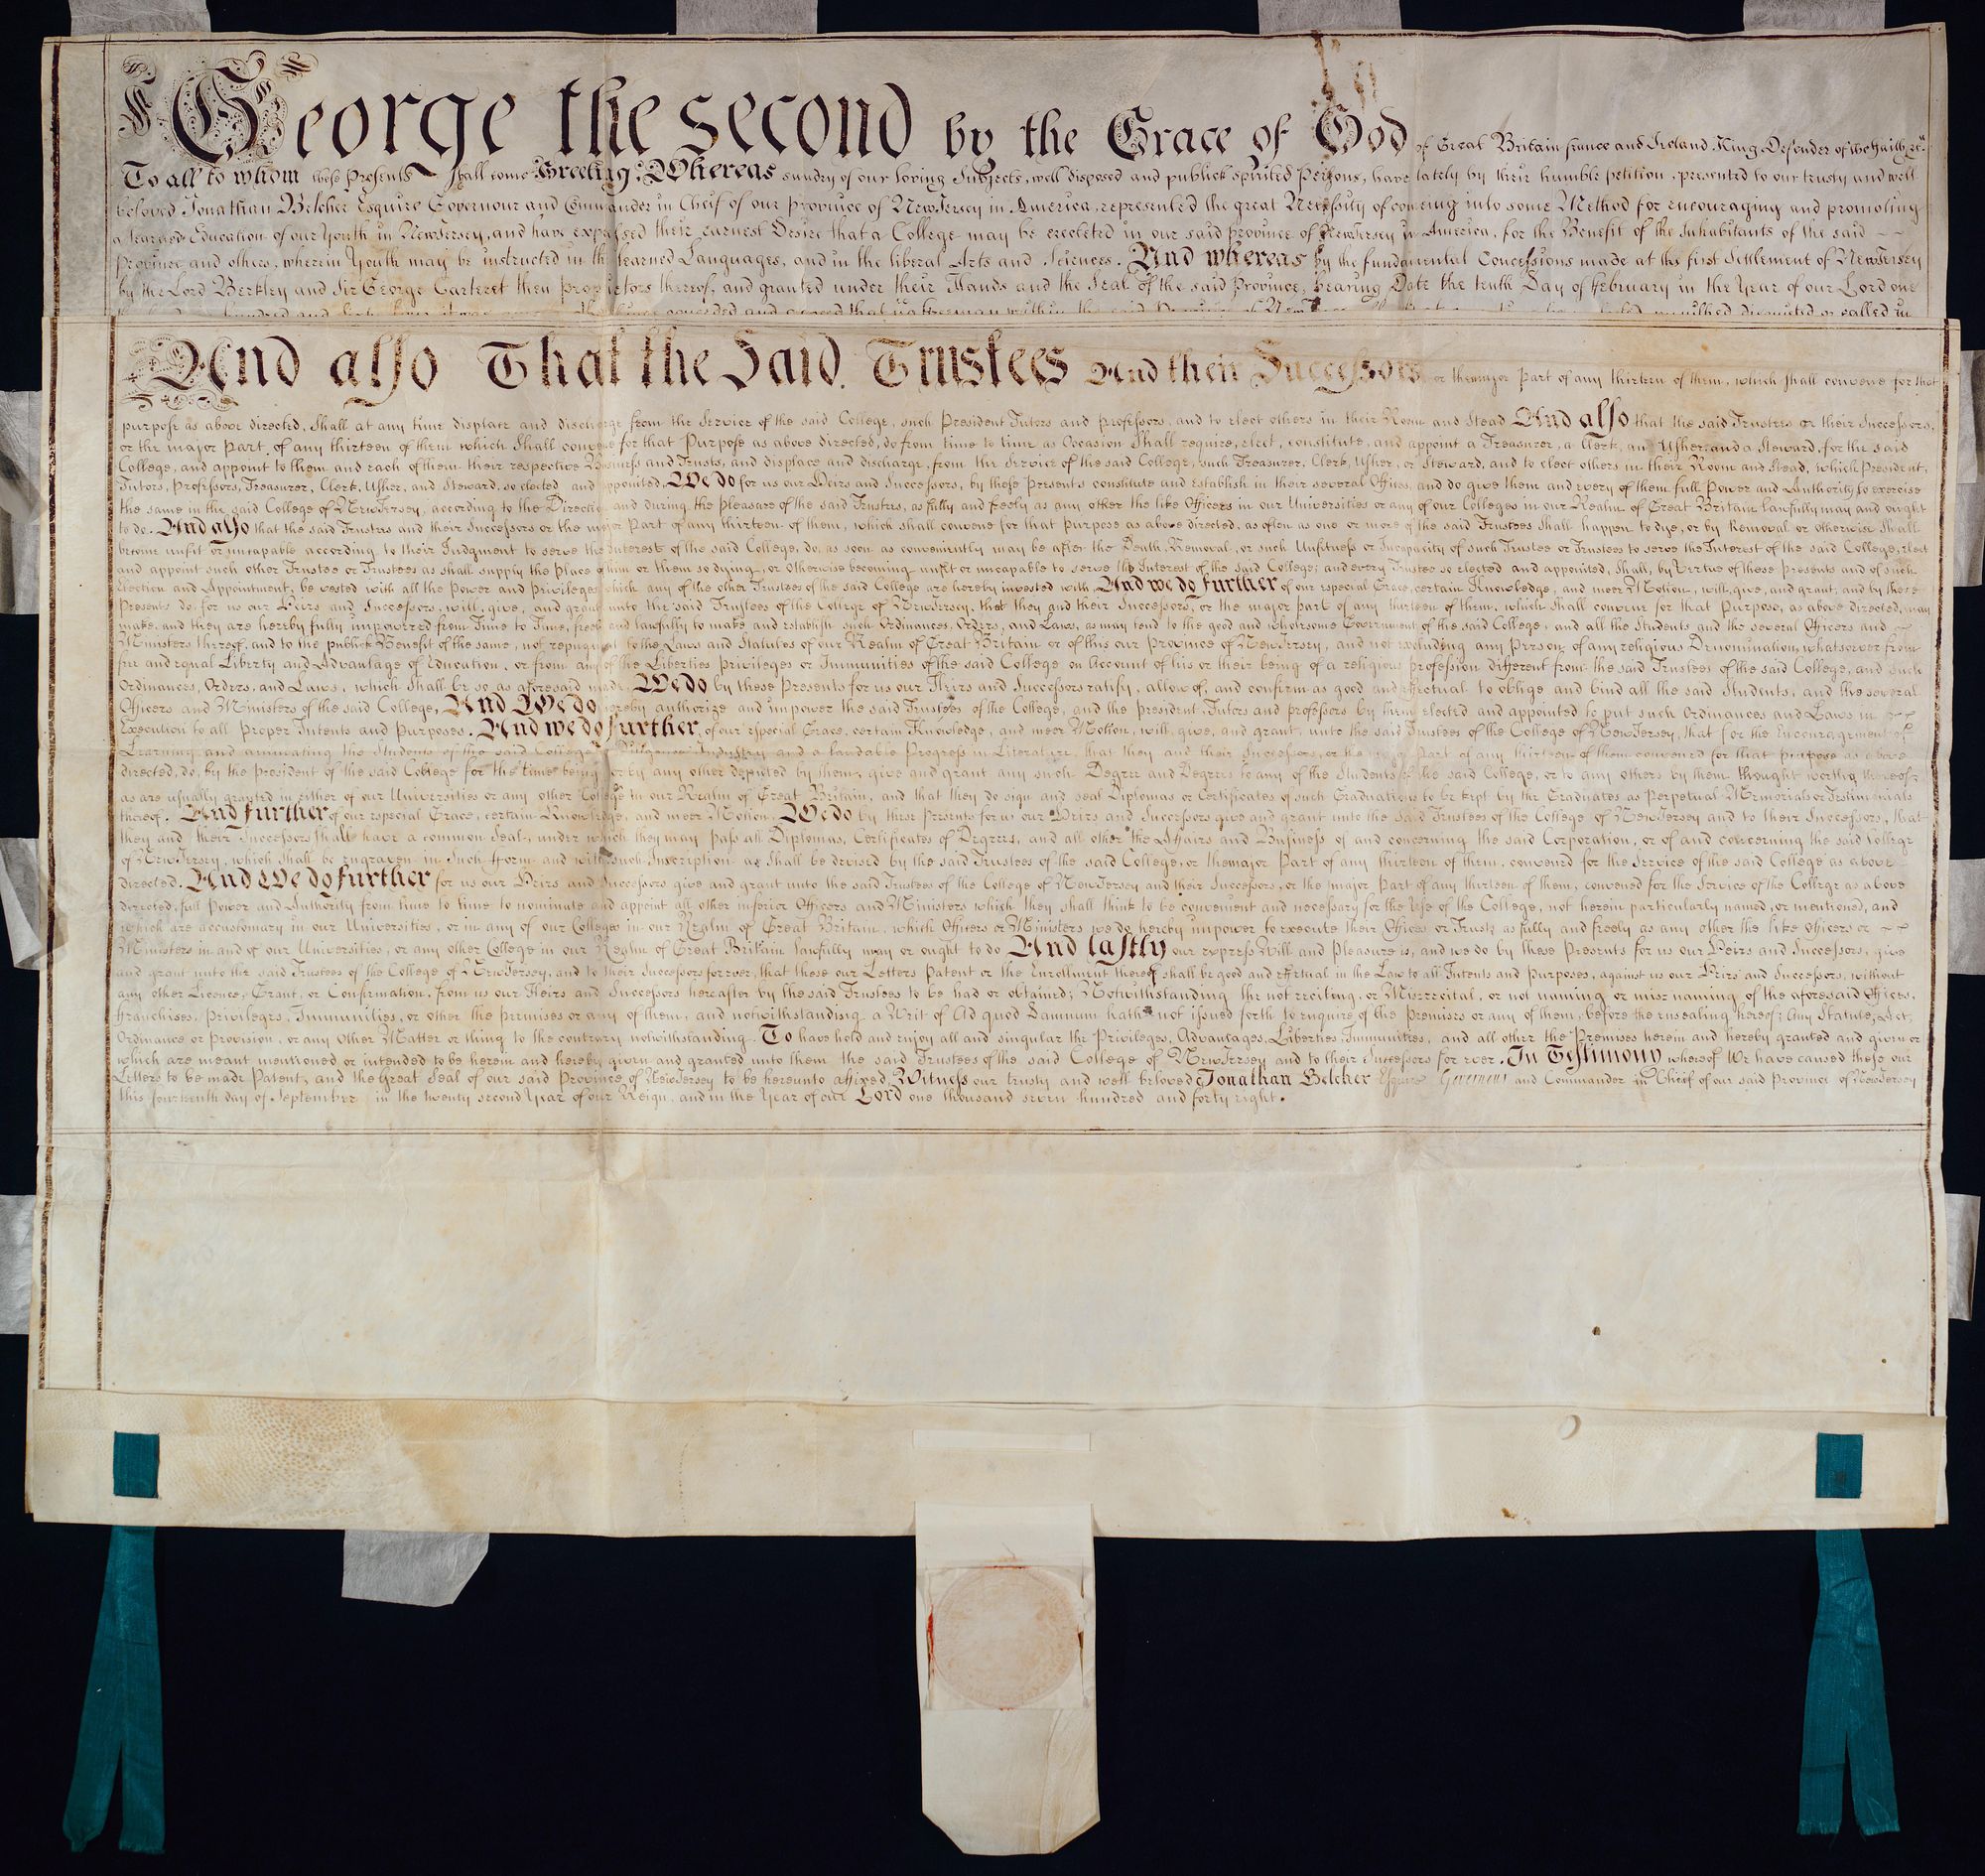 George the second by the Grace of God of Great Britain france and Ireland King Defender of the faith &c.
To all to whom these Presents shall come Greeting: Whereas sundry of our loving Subjects, well disposed and publick spirited Persons, have lately by their humble petition, presented to our trusty and well
beloved Jonathan Belcher Esquire Governour and Commander in Cheif of our Province of New Jersey in America, represented the great Necessity of coming into some Method for encouraging and promoting
a learned Education of our Youth in New Jersey, and have expressed their earnest Desire that a College may be erected in our said Province of New Jersey in America, for the Benefit of the Inhabitants of the said
Province and others, wherein Youth may be instructed in the learned Languages, and in the liberal Arts and Sciences. And whereas by the fundamental Concessions made at the first Settlement of New Jersey
by the Lord Berkley and Sir George Carteret then Proprietors thereof, and granted under their Hands and the Seal of the said Province, bearing Date the tenth Day of february in the Year of our Lord one
And also That the Said Trustees And their Successors or the major Part of any thirteen of them, which shall convene for that
purpose as above directed, Shall at any time displace and discharge from the Service of the said College, such President Tutors and Professors, and to elect others in their Room and Stead And also that the said Trustees or their Successors,
or the major Part, of any thirteen of them which Shall convene for that Purpose as above directed, do from time to time as Occasion Shall require, elect, constitute, and appoint a Treasurer, a Clerk, an Usher, and a Steward, for the said
College, and appoint to them and each of them their respective Business and Trusts, and displace and discharge, from the Service of the said College, such Treasurer, Clerk, Usher, or Steward, and to elect others in their Room and Stead, which President,
Tutors, Professors, Treasurer, Clerk, Usher, and Steward, so elected and appointed, We do for us our Heirs and Successors, by these Presents constitute and establish in their several Offices, and do give them and every of them full Power and Authority to exercise
the same in the said College of New Jersey, according to the Direction and during the Pleasure of the said Trustees, as fully and freely as any other the like Officers in our Universities or any of our Colleges in our Realm of Great Britain lawfully may and ought
to do. And also that the said Trustees and their Successors or the major Part of any thirteen of them, which shall convene for that purpose as above directed, as often as one or more of the said Trustees Shall happen to dye, or by Removal or otherwise Shall
become unfit or uncapable according to their Judgment to serve the Interest of the said College, do, as soon as conveniently may be after the Death, Removal, or such Unfitness or Incapacity of such Trustee or Trustees to serve the Interest of the said College, elect
and appoint such other Trustee or Trustees as shall supply the Place of him or them so dying, or otherwise becoming unfit or uncapable to serve the Interest of the said College; and every Trustee so elected and appointed, Shall, by Virtue of these Presents and of such
Election and Appointment, be vested with all the Power and Privileges which any of the other Trustees of the said College are hereby invested with And we do further of our especial Grace, certain Knowledge, and meer Motion, will, give, and grant, and by these
Presents do, for us our Heirs and Successors, will, give, and grant unto the said Trustees of the College of New Jersey, that they and their Successors, or the major Part of any thirteen of them, which shall convene for that Purpose, as above directed, may
make, and they are hereby fully impowered from Time to Time, freely and lawfully to make and establish such Ordinances, Orders, and Laws, as may tend to the good and wholesome Government of the said College, and all the Students and the several Officers and
Ministers thereof, and to the publick Benefit of the same, not repugnant to the Laws and Statutes of our Realm of Great Britain or of this our Province of New Jersey, and not excluding any Person of any religious Denomination whatsoever from
free and equal Liberty and Advantage of Education, or from any of the Liberties Privileges or Immunities of the said College on Account of his or their being of a religious profession different from the said Trustees of the said College, and such
Ordinances, Orders, and Laws, which shall be so as aforesaid made, We do by these Presents for us our Heirs and Successors ratify, allow of, and confirm as good and effectual to oblige and bind all the said Students, and the several
Officers and Ministers of the said College, And We do hereby authorize and impower the said Trustees of the College, and the President, Tutors and Professors by them elected and appointed to put such Ordinances and Laws in
Execution to all Proper Intents and Purposes. And we do further, of our especial Grace, certain Knowledge, and meer Motion, will, give, and grant, unto the said Trustees of the College of New Jersey, that for the Encouragement of
Learning and animating the Students of the said College to Diligence Industry and a laudable Progress in Literature, that they and their Successors, or the major Part of any thirteen of them convened for that purpose as above
directed, do, by the President of the said College for the time being or by any other deputed by them, give and grant any such Degree and Degrees to any of the Students of the said College, or to any others by them thought worthy thereof,
as are usually granted in either of our Universities or any other College in our Realm of Great Britain, and that they do sign and seal Diplomas or Certificates of such Graduations to be kept by the Graduates as Perpetual Memorials or Testimonials
thereof. And further of our especial Grace, certain Knowledge, and meer Motion, We do by these Presents for us our Heirs and Successors give and grant unto the said Trustees of the College of New Jersey and to their Successors, that
they and their Successors shall have a common Seal, under which they may pass all Diplomas, Certificates of Degrees, and all other the Affairs and Business of and concerning the said Corporation, or of and concerning the said College
of New Jersey, which shall be engraven in such form and with such Inscription as shall be devised by the said Trustees of the said College, or the major Part of any thirteen of them, convened for the Service of the said College as above
directed. And We do further for us our Heirs and Successors give and grant unto the said Trustees of the College of New Jersey and their Successors, or the major Part of any thirteen of them, convened for the Service of the College as above
directed, full Power and Authority from time to time to nominate and appoint all other inferior Officers and Ministers which they shall think to be convenient and necessary for the Use of the College, not herein particularly named, or mentioned, and
which are accustomary in our Universities, or in any of our Colleges in our Realm of Great Britain, which Officers or Ministers we do hereby impower to execute their Offices or Trusts as fully and freely as any other the like Officers or
Ministers in and of our Universities, or any other College in our Realm of Great Britain lawfully may or ought to do And lastly our express Will and Pleasure is, and we do by these Presents for us our Heirs and Successors, give
and grant unto the said Trustees of the College of New Jersey, and to their Successors forever, that these our Letters Patent or the Enrollment thereof shall be good and effectual in the Law to all Intents and Purposes, against us our Heirs and Successors, without
any other Licence, Grant, or Confirmation, from us our Heirs and Successors hereafter by the said Trustees to be had or obtained; Notwithstanding the not reciting, or Misrecital, or not naming or misnaming of the aforesaid Offices,
franchises, Privileges, Immunities, or other the premises or any of them, and notwithstanding a Writ of Ad quod Damnum hath not issued forth to enquire of the Premises or any of them, before the ensealing hereof; Any Statute, Act,
Ordinance or Provision, or any other Matter or thing to the contrary notwithstanding. To have hold and enjoy all and singular the Privileges, Advantages, Liberties, Immunities, and all other the Premises herein and hereby granted and given or
which are meant mentioned or intended to be herein and hereby given and granted unto them the said Trustees of the said College of New Jersey and to their Successors for ever. In Testimony whereof We have caused these our
Letters to be made Patent, and the Great Seal of our said Province of New Jersey to be hereunto affixed, Witness our trusty and well beloved Jonathan Belcher Esquire Governour and Commander in Chieif of our said Province of New Jersey
this fourteenth day of September in the twenty second Year of our Reign, and in the Year of our Lord one thousand seven hundred and forty eight.